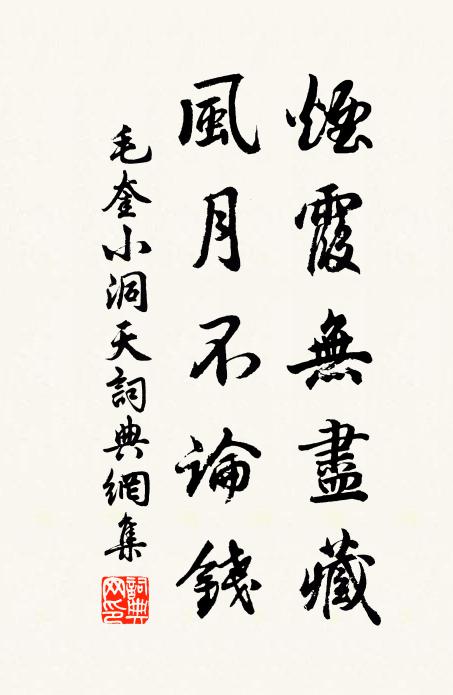 煙霞無盡藏
風月不論錢
毛奎小洞天詞典網集
詞典網印